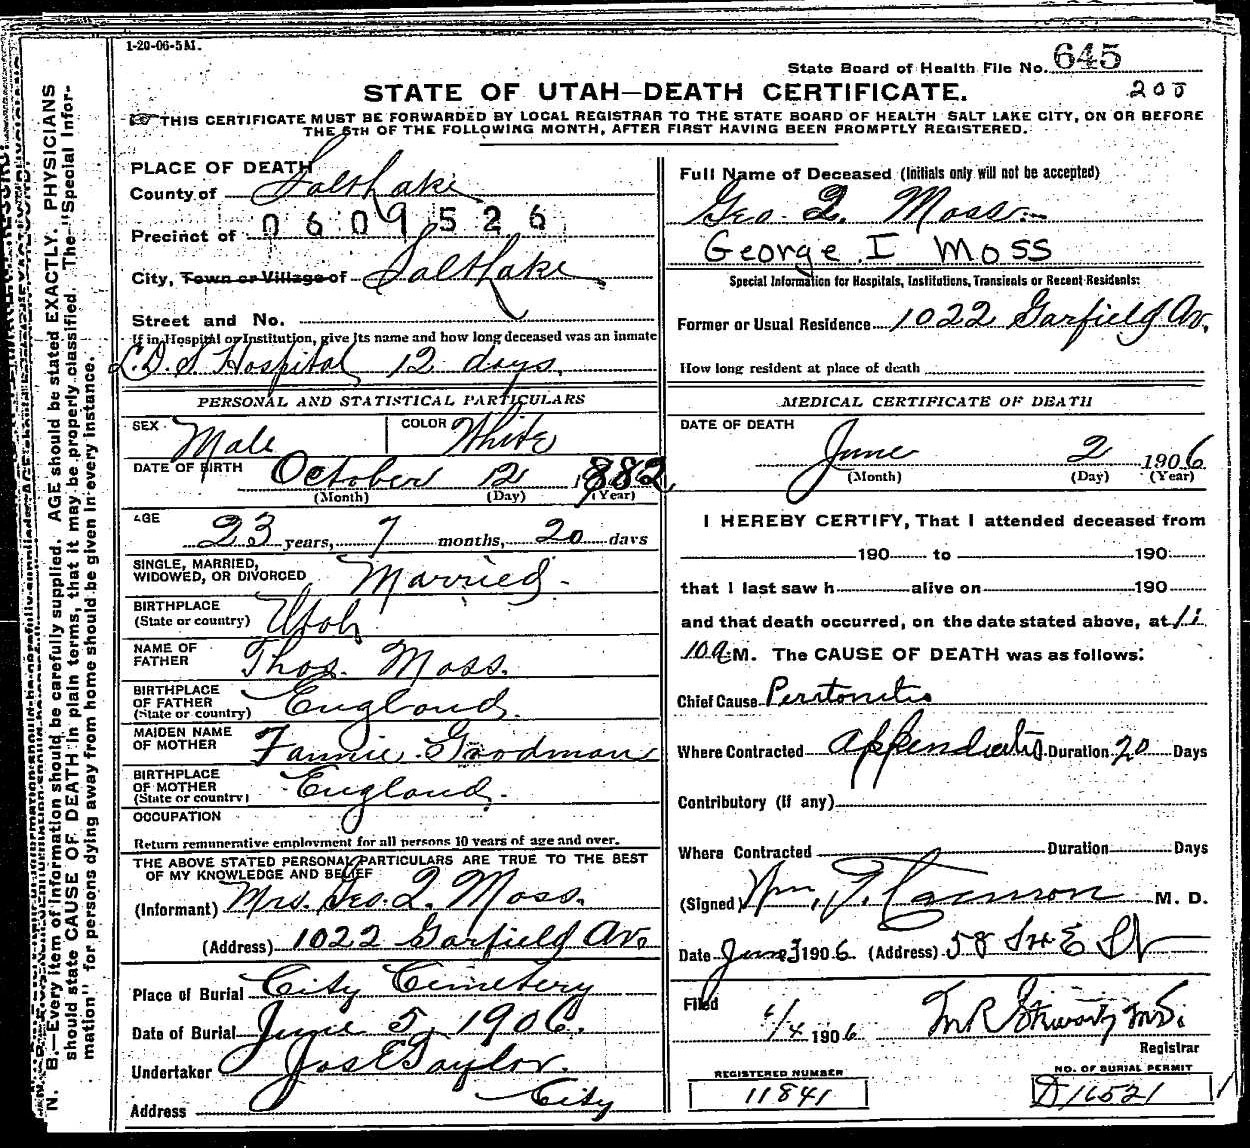 1-20-06-5M.
State Board of Health File No. 645
200
STATE OF UTAH—DEATH CERTIFICATE.
THIS CERTIFICATE MUST BE FORWARDED BY LOCAL REGISTRAR TO THE STATE BOARD OF HEALTH SALT LAKE CITY, ON OR BEFORE
THE 5TH OF THE FOLLOWING MONTH, AFTER FIRST HAVING BEEN PROMPTLY REGISTERED.
PLACE OF DEATH
County of Salt Lake
Precinct of 0609526
City, Town or Village of Salt Lake
Street and No.
If in Hospital or Institution, give its name and how long deceased was an inmate
L.D.S Hospital 12 days.
PERSONAL AND STATISTICAL PARTICULARS
SEX Male COLOR White
DATE OF BIRTH October 12 1882
(Month) (Day) (Year)
AGE
23 years, 7 months, 20 days
SINGLE, MARRIED,
WIDOWED, OR DIVORCED Married.
BIRTHPLACE
(State or country) Utah
NAME OF
FATHER Thos. Moss.
BIRTHPLACE
OF FATHER
(State or country) England.
MAIDEN NAME
OF MOTHER Fannie Goodman
BIRTHPLACE
OF MOTHER
(State or country) England.
OCCUPATION
Return remunerative employment for all persons 10 years of age and over.
THE ABOVE STATED PERSONAL PARTICULARS ARE TRUE TO THE BEST
OF MY KNOWLEDGE AND BELIEF
(Informant) Mrs. Geo. I. Moss.
(Address) 1022 Garfield Av.
Place of Burial City Cemetery
Date of Burial June 5, 1906.
Undertaker Jos E Taylor.
Address City
Full Name of Deceased (Initials only will not be accepted)
Geo. I. Moss
George I Moss
Special Information for Hospitals, Institutions, Transients or Recent Residents:
Former or Usual Residence 1022 Garfield Av.
How long resident at place of death
MEDICAL CERTIFICATE OF DEATH
DATE OF DEATH
June 2 1906
(Month) (Day) (Year)
I HEREBY CERTIFY, That I attended deceased from
190 to 190
that I last saw h alive on 190
and that death occurred, on the date stated above, at 11
10 a M. The CAUSE OF DEATH was as follows:
Chief Cause Peritonitis
Where Contracted Appendicitis Duration 20 Days
Contributory (if any)
Where Contracted Duration Days
(Signed) Wm. M. D.
Date June 3 1906 (Address) 58 So E St
Filed
6/4 1906 M.D.
Registrar
REGISTERED NUMBER
11841
NO. OF BURIAL PERMIT
D16521
N. B.—Every item of information should be carefully supplied. AGE should be stated EXACTLY. PHYSICIANS
should state CAUSE OF DEATH in plain terms, that it may be properly classified. The "Special Infor-
mation" for persons dying away from home should be given in every instance.